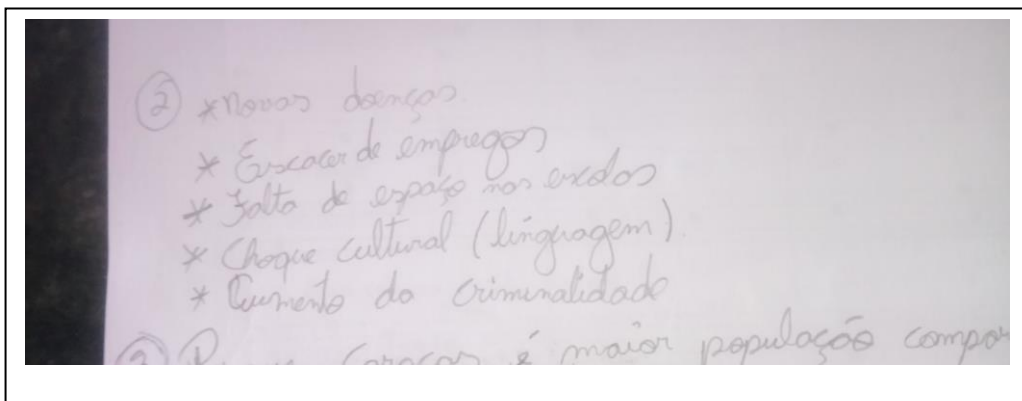 ② *novas doenças.
* Escacer de empregos
* Falta de espaço nas escolas
* Choque cultural (linguagem).
* Aumento da criminalidade
Caracas é maior população compar